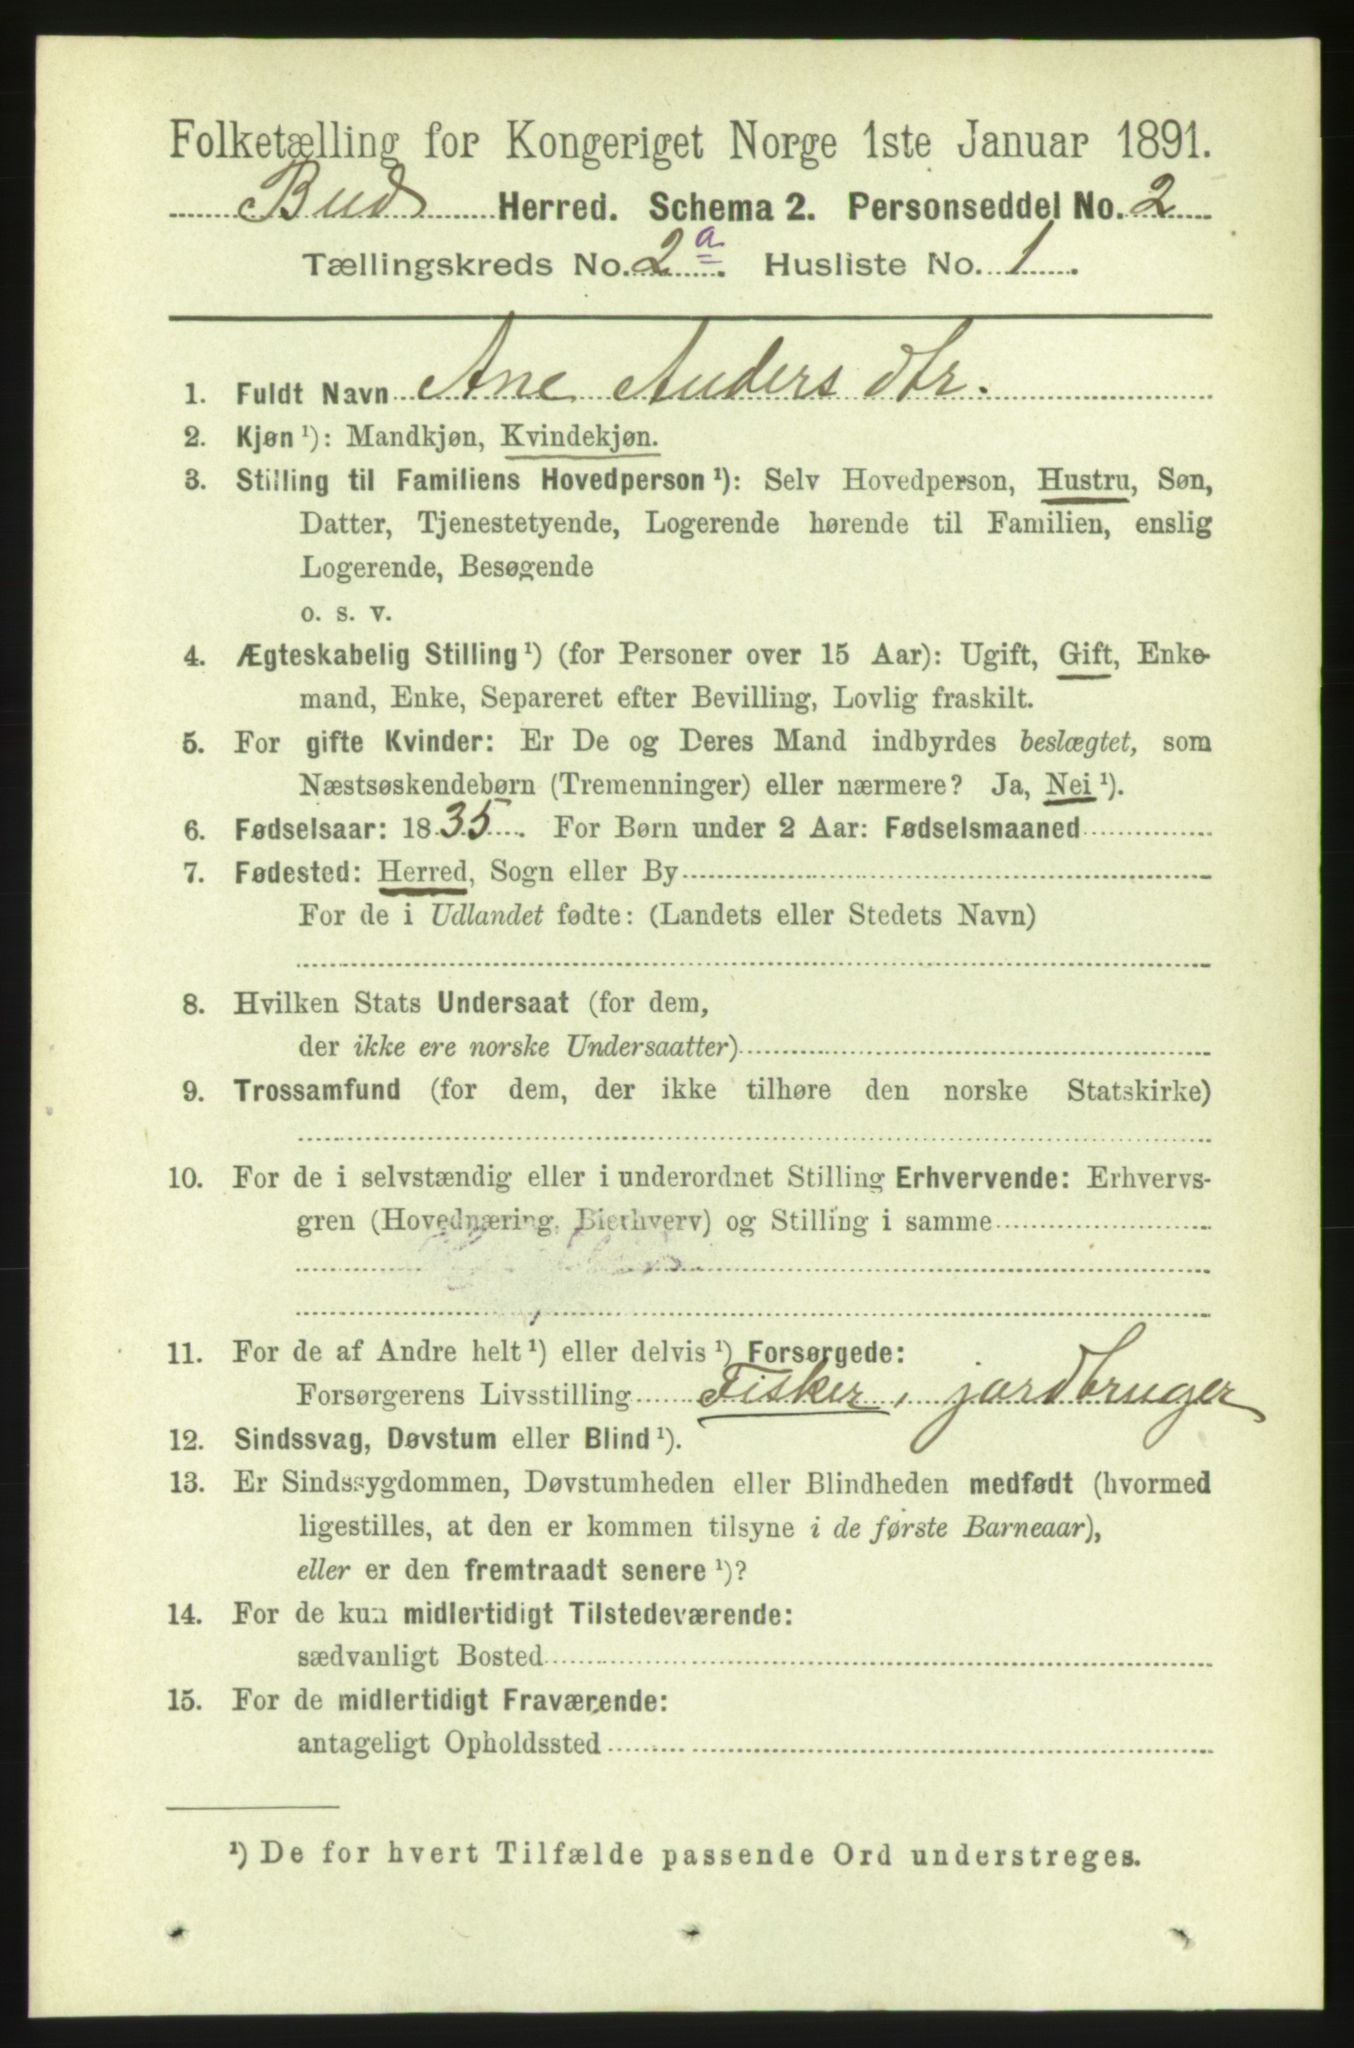 Folketælling for Kongeriget Norge 1ste Januar 1891.
Bud Herred. Schema 2. Personseddel No. 2
Tællingskreds No. 2 a. Husliste No. 1.
1. Fuldt Navn Ane Anders dtr.
2. Kjøn ¹): Mandkjøn, Kvindekjøn.
3. Stilling til Familiens Hovedperson ¹): Selv Hovedperson, Hustru, Søn,
Datter, Tjenestetyende, Logerende hørende til Familien, enslig
Logerende, Besøgende
o. s. v.
4. Ægteskabelig Stilling ¹) (for Personer over 15 Aar): Ugift, Gift, Enke-
mand, Enke, Separeret efter Bevilling, Lovlig fraskilt.
5. For gifte Kvinder: Er De og Deres Mand indbyrdes beslægtet, som
Næstsøskendebørn (Tremenninger) eller nærmere? Ja, Nei ¹).
6. Fødselsaar: 1835. For Børn under 2 Aar: Fødselsmaaned
7. Fødested: Herred, Sogn eller By
For de i Udlandet fødte: (Landets eller Stedets Navn)
8. Hvilken Stats Undersaat (for dem,
der ikke ere norske Undersaatter)
9. Trossamfund (for dem, der ikke tilhøre den norske Statskirke)
10. For de i selvstændig eller i underordnet Stilling Erhvervende: Erhvervs-
gren (Hovednæring, Bierhverv) og Stilling i samme
11. For de af Andre helt ¹) eller delvis ¹) Forsørgede:
Forsørgerens Livsstilling Fisker, jordbruger
12. Sindssvag, Døvstum eller Blind ¹).
13. Er Sindssygdommen, Døvstumheden eller Blindheden medfødt (hvormed
ligestilles, at den er kommen tilsyne i de første Barneaar),
eller er den fremtraadt senere ¹)?
14. For de kun midlertidigt Tilstedeværende:
sædvanligt Bosted
15. For de midlertidigt Fraværende:
antageligt Opholdssted
¹) De for hvert Tilfælde passende Ord understreges.